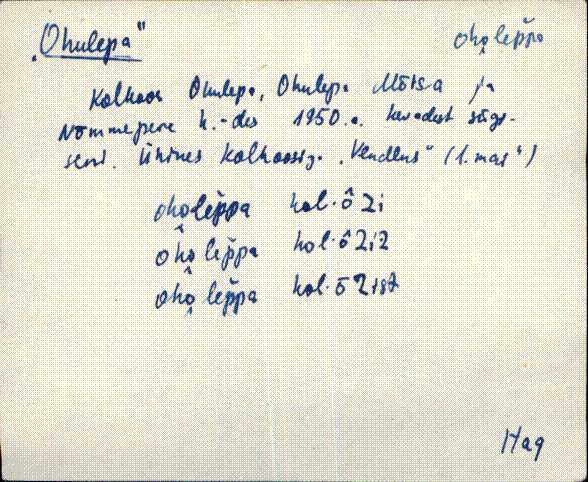 "Ohulepa" oho̭lep̆pa
Kolhoos Ohulepa, Ohulepa Mõisa ja
Nõmmepere k.-des 1950.a. kevadest sügi-
seni. Ühines kolhoosiga „Vendlus“ (1. mai“)
oho̭lep̆pa kol·ôzi
oho̭lep̆pa kol·ôziz
oho̭lep̆pa kol·ōzist
Hag